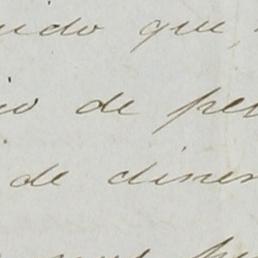 ido que
io de pe
de diner